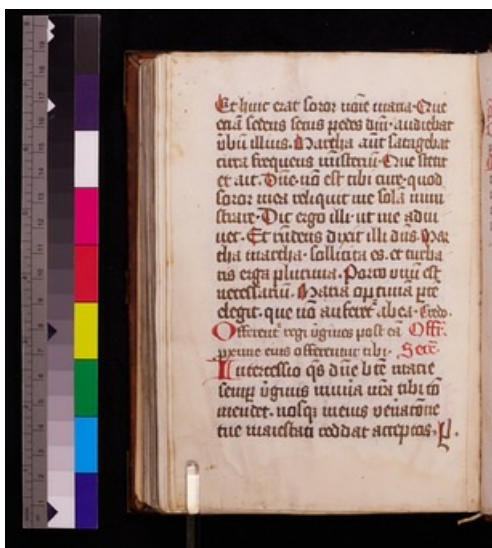 Et huic erat soror nõie maria. Que
etiã sedens secus pedes dñi. audiebat
v̄bũ illius. Martha aũt satagebat
circa frequens mĩsteriũ. Que stetit
et ait. Dñe. nõ est tibi cure. quod
soror mea reliquit me solã mini
strare. Dic ergo illi. ut me adiu
uet. Et rñdens dixit illi dñs. Mar
tha martha. sollicita es. et turba
ris erga plurima. Porro unũ est
necessariũ. Maria optimã ptẽ
elegit. que nõ auferet̃ ab ea. Credo.
Offerent̃ regi v̄gines post eã Offr̃.
pxime eius offerentur tibi. Secr̃.
Intercessio qs dñe btẽ marie
semp v̄gĩnis munia nr̃a tibi cõ
mendet. nosqꝫ in eius venacõne
tue maiestati reddat acceptos. P.